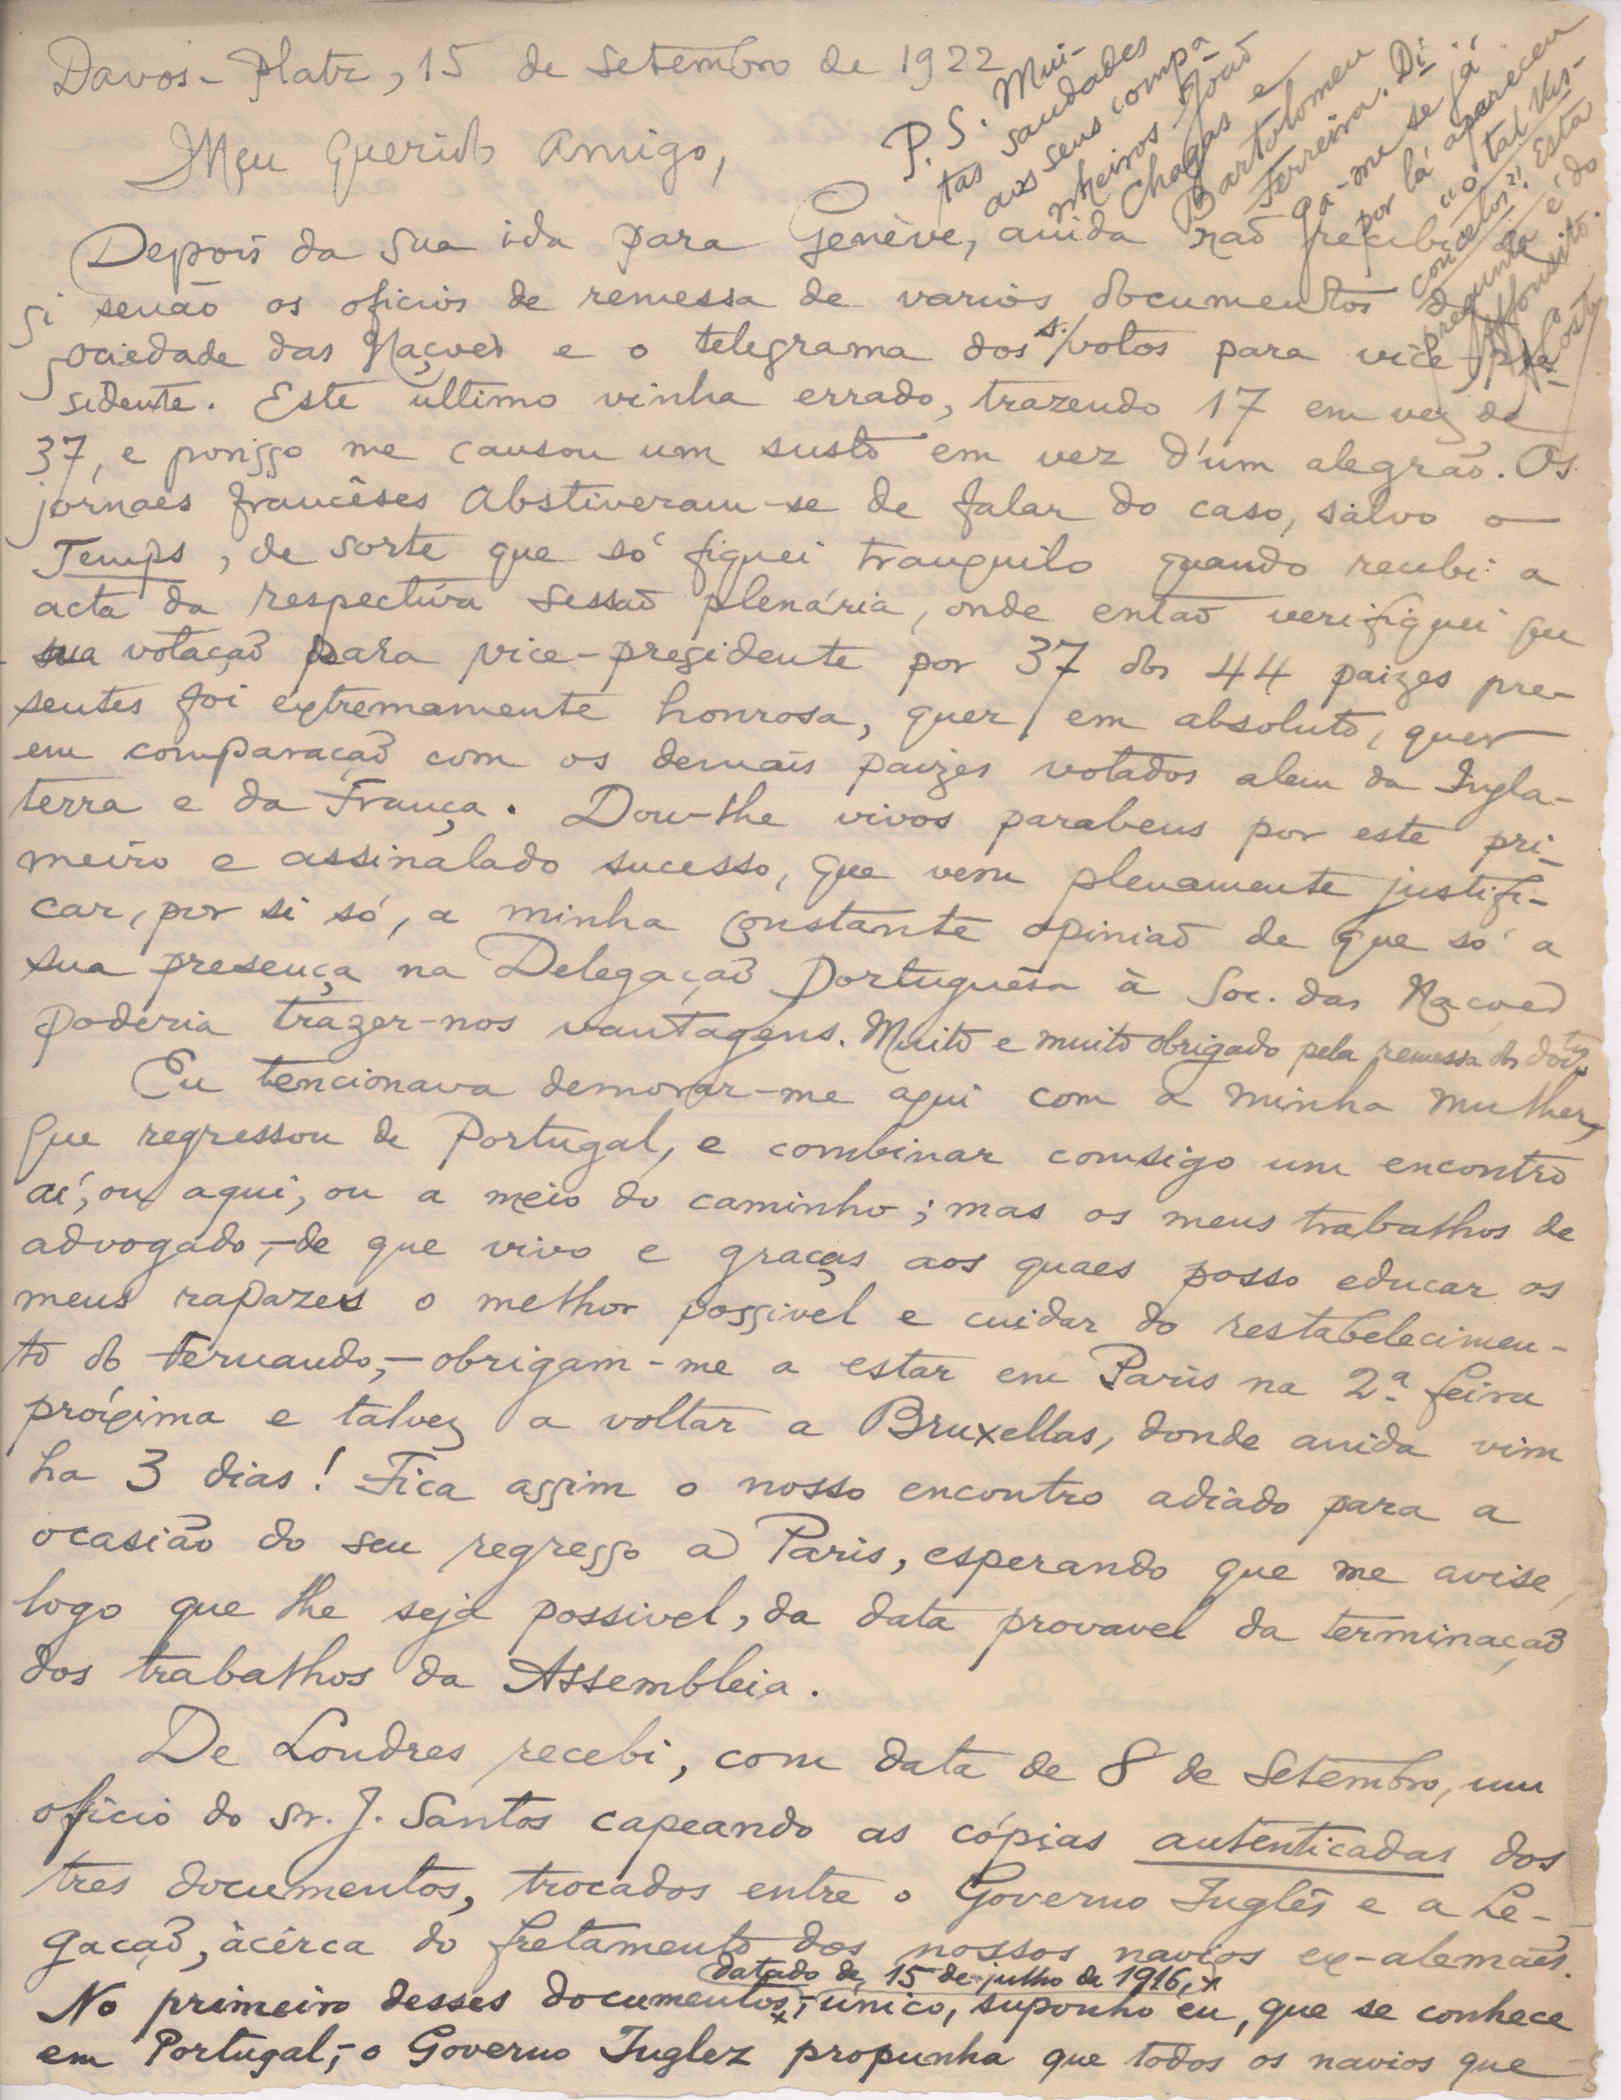 Davos-Platz, 15 de Setembro de 1922
Meu Querido Amigo,
Depois da sua ida para Genève, ainda não recebi de
si senão os oficios de remessa de varios documentos da
Sociedade das Nações e o telegrama dos s/ votos para vice-pre-
sidente. Este ultimo vinha errado, trazendo 17 em vez de
37, e porisso me causou um susto em vez d'um alegrão. Os
jornaes francêses abstiveram-se de falar do caso, salvo o
Temps, de sorte que só fiquei tranquilo quando recebi a
acta da respectiva sessão plenária, onde então verifiquei que
sua votação para vice-presidente por 37 dos 44 paizes pre-
sentes foi extremamente honrosa, quer em absoluto, quer
em comparação com os demais paizes votados alem da Ingla-
terra e da França. Dou-lhe vivos parabens por este pri-
meiro e assinalado sucesso, que vem plenamente justifi-
car, por si só, a minha constante opinião de que só a
sua presença na Delegação Portuguêsa à Soc. das Nações
poderia trazer-nos vantagens. Muito e muito obrigado pela remessa dos doctos.
Eu tencionava demorar-me aqui com a minha mulher,
que regressou de Portugal, e combinar comsigo um encontro
aí, ou aqui, ou a meio do caminho; mas os meus trabalhos de
advogado,-de que vivo e graças aos quaes posso educar os
meus rapazes o melhor possivel e cuidar do restabelecimen-
to do Fernando,-obrigam-me a estar em Paris na 2.ª feira
próxima e talvez a voltar a Bruxellas, donde ainda vim
ha 3 dias! Fica assim o nosso encontro adiado para a
ocasião do seu regresso a Paris, esperando que me avise,
logo que lhe seja possivel, da data provavel da terminação
dos trabalhos da Assembleia.
De Londres recebi, com data de 8 de Setembro, um
oficio do Sr. J. Santos capeando as cópias autenticadas dos
tres documentos, trocados entre o Governo Inglês e a Le-
gação, àcêrca do fretamento dos nossos navios ex-alemães.
datado de 15 de julho de 1916, x
No primeiro desses documentos, x -único, suponho eu, que se conhece
em Portugal,-o Governo Inglez propunha que todos os navios que
P.S. Mui-
tas saudades
aos seus compa-
nheiros João
Chagas e
Bartolomeu
Ferreira. Di-
ga-me se já
por lá apareceu
"o tal Vas-
concelos"! Esta
pregunta é do
Affonsito.